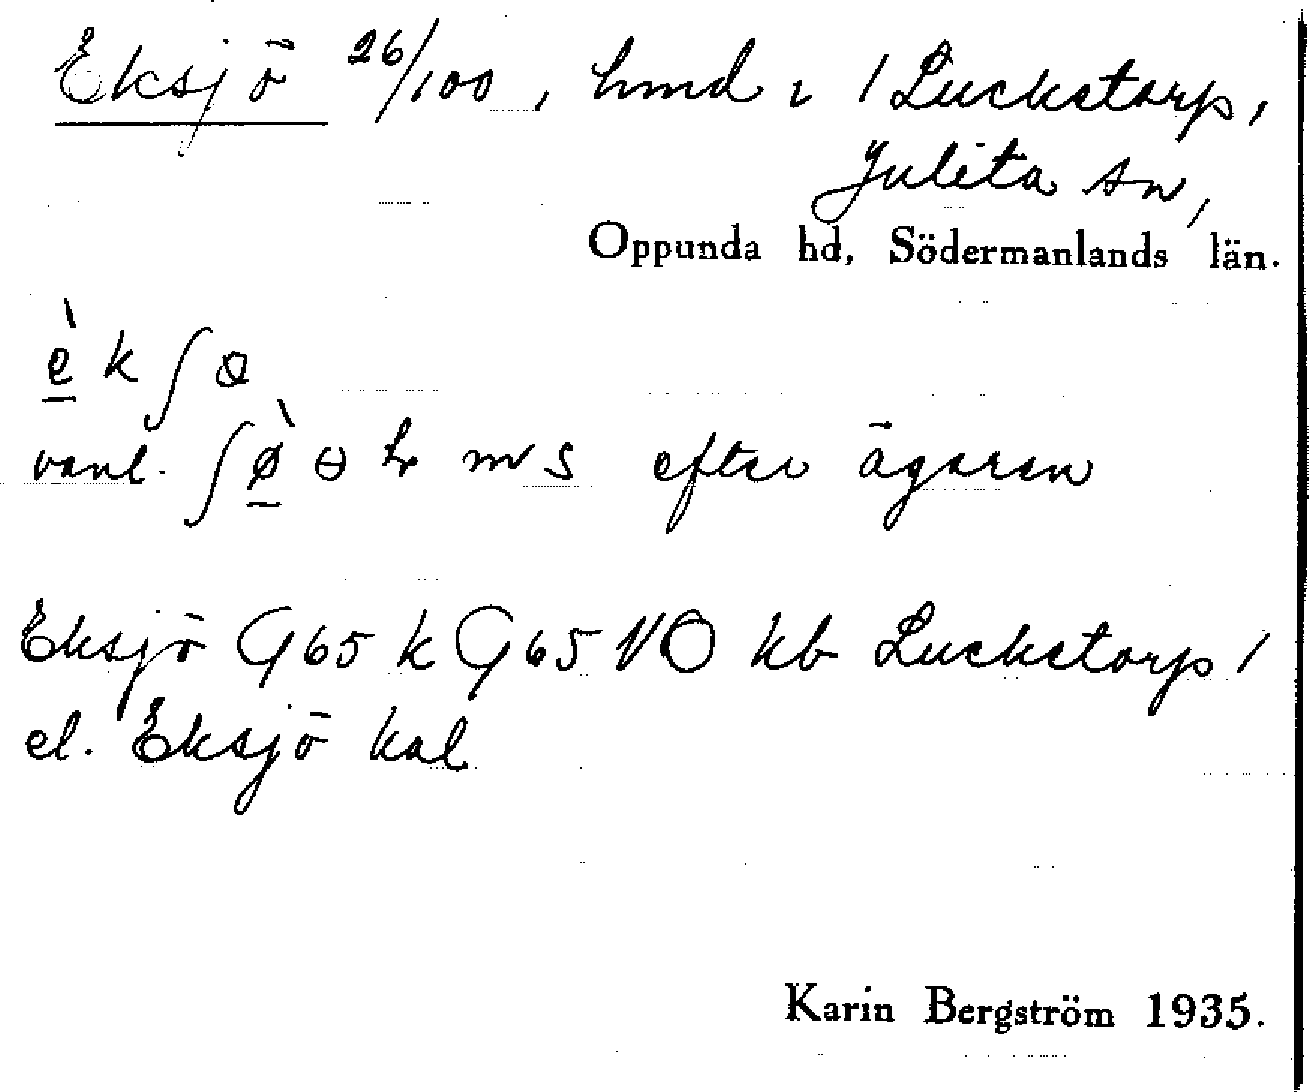 Eksjö 26/100, hmd i / Luckstorp,
Julita sn,
Oppunda hd, Södermanlands län.
è k ʃ ɵ
vanl. ʃ ø̀ ɵ efter ägaren
Eksjö G 65 k G 65 NO kb Luckstorp /
el. Eksjö kal
Karin Bergström 1935.